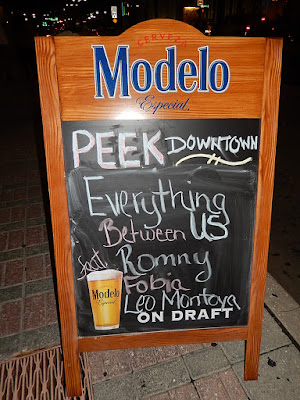 CERVEZA
Modelo
Especial
PEEK DOWNTOWN
Everything
Between US
feat. Romny
Fobia
Leo Montoya
Modelo
Especial
ON DRAFT